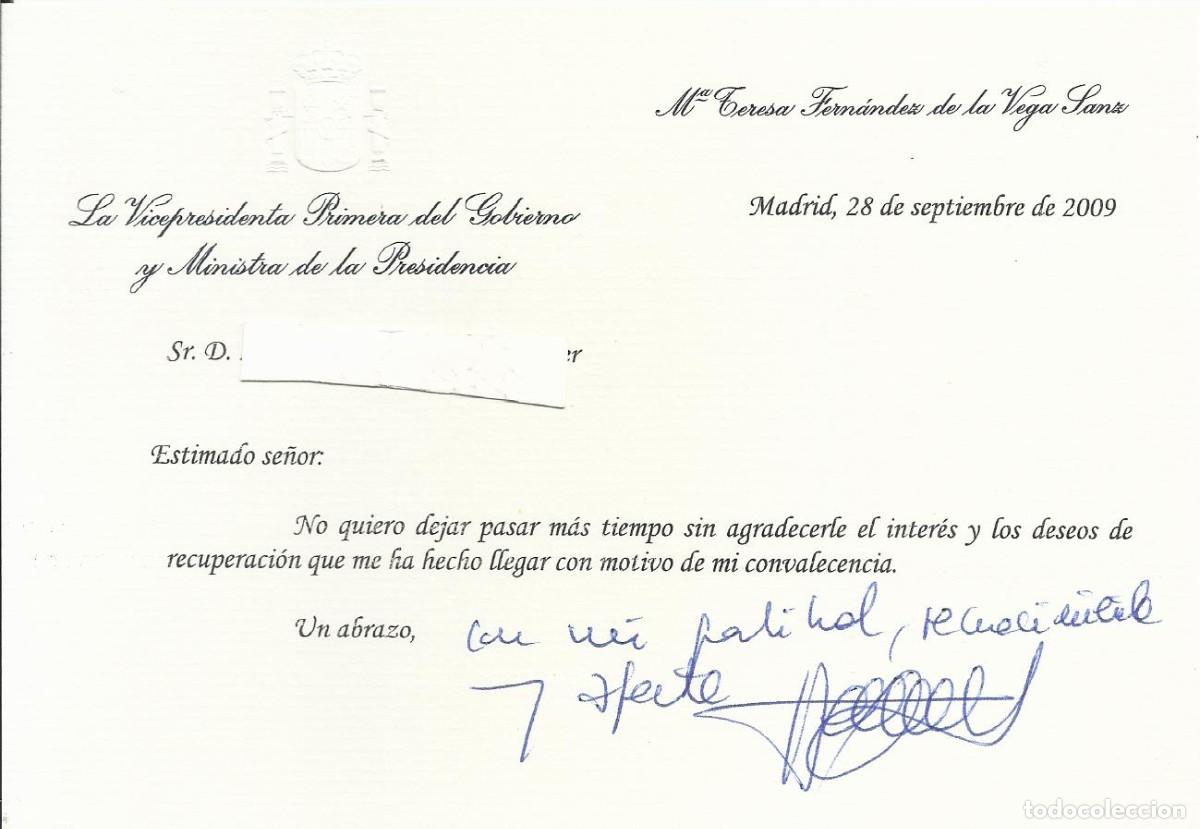 Mª Teresa Fernández de la Vega Sanz
La Vicepresidenta Primera del Gobierno
y Ministra de la Presidencia
Madrid, 28 de septiembre de 2009
Sr. D.
er
Estimado señor:
No quiero dejar pasar más tiempo sin agradecerle el interés y los deseos de
recuperación que me ha hecho llegar con motivo de mi convalecencia.
Un abrazo, con mi gratitud, reconocimiento
y afecto
todocoleccion